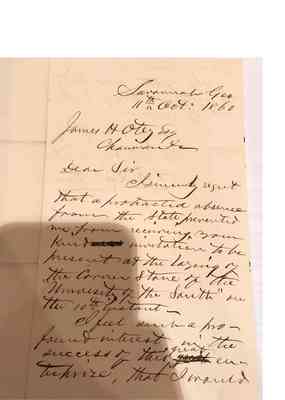 Savannah Geo
11th Oct: 1860
James H Otey Esq
Chairman &c
Dear Sir
I sincerely regret
that a protracted absence
from the State prevented
me from receiving your
kind invitation to be
present at the laying of
the Corner Stone of "the
University of the South" on
the 10th instant—
I feel such a pro-
found interest in the
success of this great en-
terprize, that I would